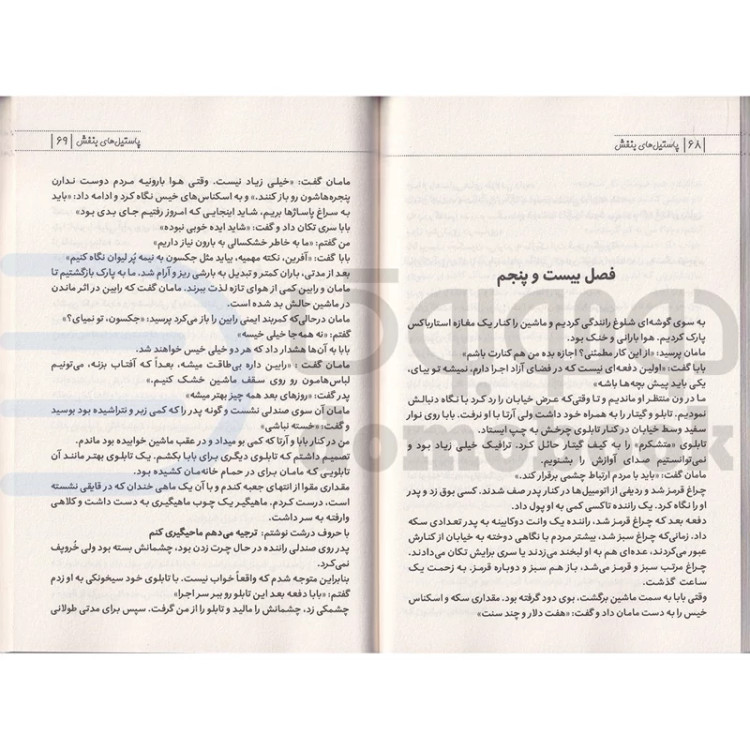 | ۶۸ | پاستیل‌های بنفش
فصل بیست و پنجم
به سوی گوشه‌ای شلوغ رانندگی کردیم و ماشین را کنار یک مغازه استارباکس
پارک کردیم. هوا بارانی و خنک بود.
مامان پرسید: «از این کار مطمئنی؟ اجازه بده من هم کنارت باشم»
بابا گفت: «اولین دفعه‌ای نیست که در فضای آزاد اجرا دارم، نمیشه تو بیای،
یکی باید پیش بچه‌ها باشه»
ما در ون منتظر او ماندیم و تا وقتی‌که عرض خیابان را رد کرد با نگاه دنبالش
نمودیم. تابلو و گیتار را به همراه خود داشت ولی آرتا با او نرفت. بابا روی نوار
سفید وسط خیابان در کنار تابلوی چرخش به چپ ایستاد.
تابلوی «متشکرم» را به کیف گیتار حائل کرد. ترافیک خیلی زیاد بود و
نمی‌توانستیم صدای آوازش را بشنویم.
مامان گفت: «باید با مردم ارتباط چشمی برقرار کند.»
چراغ قرمز شد و ردیفی از اتومبیل‌ها در کنار پدر صف شدند. کسی بوق زد و پدر
او را نگاه کرد. یک راننده تاکسی کمی به او پول داد.
دفعه بعد که چراغ قرمز شد، راننده یک وانت دوکابینه به پدر تعدادی سکه
داد. زمانی‌که چراغ سبز شد، بیشتر مردم با نگاهی دوخته به خیابان از کنارش
عبور می‌کردند، عده‌ای هم به او لبخند می‌زدند یا سری برایش تکان می‌دادند.
چراغ مرتب سبز و قرمز می‌شد، باز هم سبز و دوباره قرمز. به زحمت یک
ساعت گذشت.
وقتی بابا به سمت ماشین برگشت، بوی دود گرفته بود. مقداری سکه و اسکناس
خیس را به دست مامان داد و گفت: «هفت دلار و چند سنت»
پاستیل‌های بنفش | ۶۹ |
مامان گفت: «خیلی زیاد نیست. وقتی هوا بارونیه مردم دوست ندارن
پنجره‌هاشون رو باز کنند.» و به اسکناس‌های خیس نگاه کرد و ادامه داد: «باید
به سراغ پاساژها بریم، شاید اینجایی که امروز رفتیم جای بدی بود»
بابا سری تکان داد و گفت: «شاید ایده خوبی نبوده»
من گفتم: «ما به خاطر خشکسالی به بارون نیاز داریم»
بابا گفت: «آفرین، نکته مهمیه، بیاید مثل جکسون به نیمه پُر لیوان نگاه کنیم»
بعد از مدتی، باران کمتر و تبدیل به بارشی ریز و آرام شد. ما به پارک بازگشتیم تا
مامان و رابین کمی از هوای تازه لذت ببرند. مامان گفت که رابین در اثر ماندن
در ماشین حالش بد شده است.
مامان درحالی‌که کمربند ایمنی رابین را باز می‌کرد پرسید: «جکسون، تو نمیای؟»
گفتم: «نه همه‌جا خیلی خیسه»
بابا به آن‌ها هشدار داد که هر دو خیلی خیس خواهند شد.
مامان گفت: «رابین داره بی‌طاقت میشه، بعداً که آفتاب بزنه، می‌تونیم
لباس‌هامون رو روی سقف ماشین خشک کنیم.»
پدر گفت: «روزهای بعد همه چیز بهتر میشه»
مامان آن سوی صندلی نشست و گونه پدر را که کمی زبر و نتراشیده بود بوسید
و گفت: «خسته نباشی»
من در کنار بابا و آرتا که کمی بو میداد و در عقب ماشین خوابیده بود ماندم.
تصمیم داشتم که تابلوی دیگری برای بابا بکشم. یک تابلوی بهتر مانند آن
تابلویی که مامان برای در حمام خانه‌مان کشیده بود.
مقداری مقوا از انتهای جعبه کندم و با آن یک ماهی خندان که در قایقی نشسته
است، درست کردم. ماهیگیر یک چوب ماهیگیری به دست داشت و کلاهی
وارفته به سر داشت.
با حروف درشت نوشتم: ترجیه می‌دهم ماحیگیری کنم
پدر روی صندلی راننده در حال چرت زدن بود، چشمانش بسته بود ولی خُروپف
نمی‌کرد.
بنابراین متوجه شدم که واقعاً خواب نیست. با تابلوی خود سیخونکی به او زدم
گفتم: «بابا دفعه بعد این تابلو رو ببر سر اجرا»
چشمکی زد، چشمانش را مالید و تابلو را از من گرفت. سپس برای مدتی طولانی